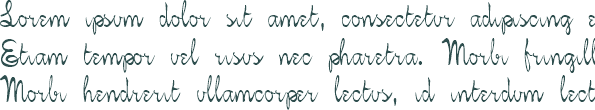 Lorem ipsum dolor sit amet, consectetur adipiscing e
Etiam tempor vel risus nec pharetra. Morbi fringill
Morbi hendrerit ullamcorper lectus, id interdum lect